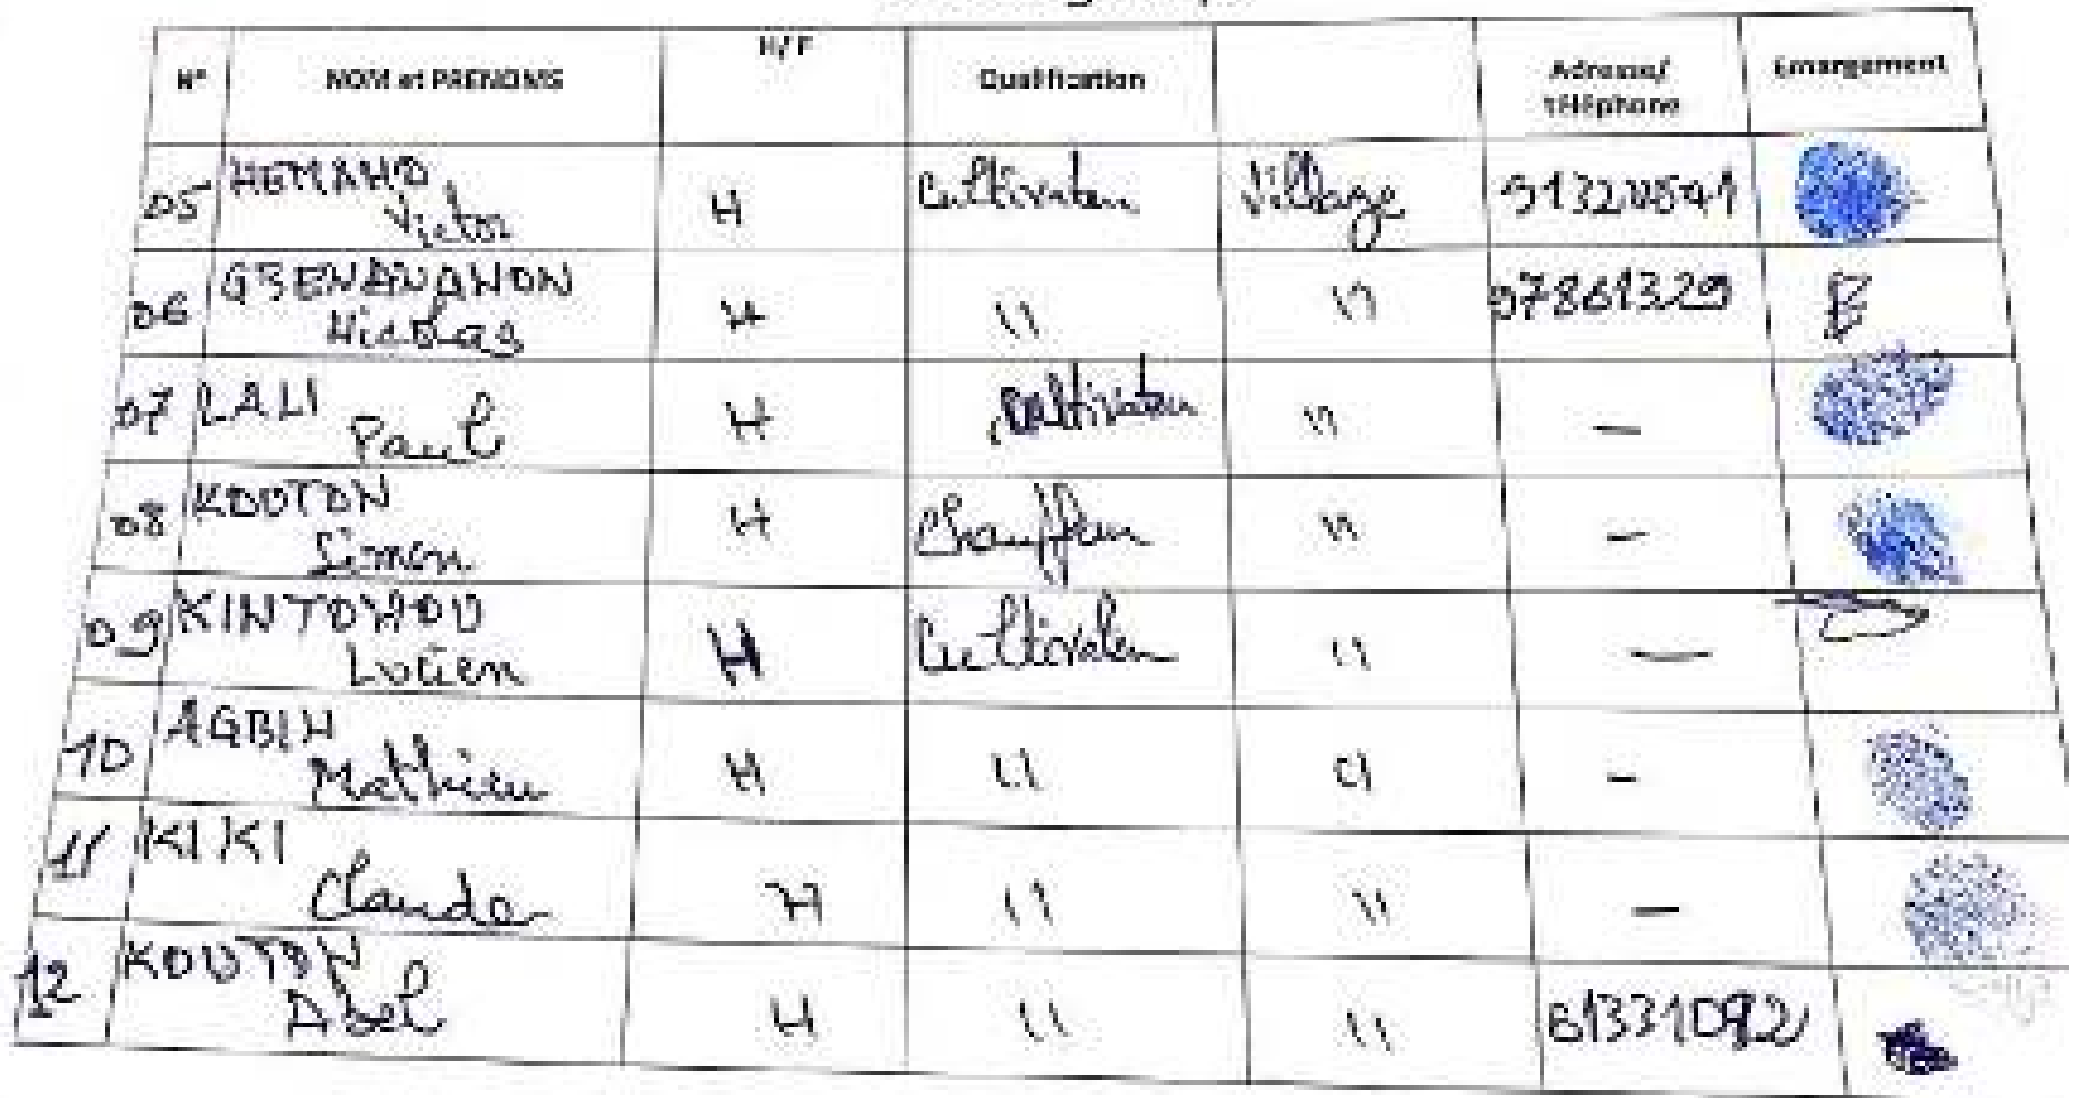 N° NOM et PRENOMS H/F Qualification Adresse/ téléphone Emargement
05 HEMAHO Victor H Cultivateu Village
06 GBENANANON Nicolas H 11 11 07861329
07 LALI Paul H Cultivateu 11 —
08 KOUTON Simon H Chauffeu 11 —
09 KINTOHOU Lucien H Cultivateu 11 —
10 AGBIH Mathieu H 11 11 -
11 KIKI Claude H 11 11 —
12 KOUTON Abel H 11 11 61331092